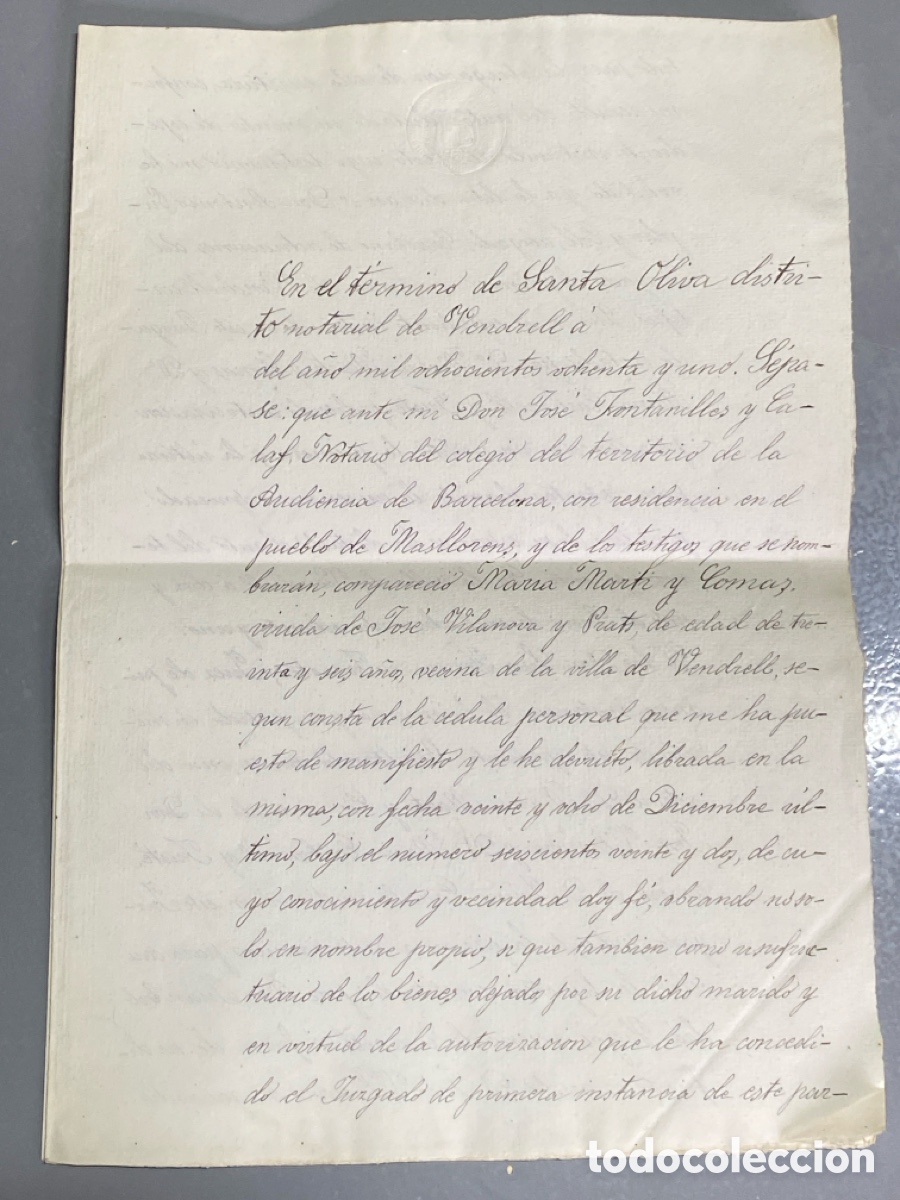 En el término de Santa Oliva distri-
to notarial de Vendrell á
del año mil ochocientos ochenta y uno. Sépa-
se: que ante mi Don José Fontanilles y Ca-
laf, Notario del colegio del territorio de la
Audiencia de Barcelona, con residencia en el
pueblo de Masllorens, y de los testigos que se nom-
brarán, compareció Maria Marti y Comas,
viuda de José Vilanova y Prats, de edad de tre-
inta y seis años, vecina de la villa de Vendrell, se-
gun consta de la cédula personal que me ha pu-
esto de manifiesto y le he devuelto, librada en la
misma, con fecha veinte y ocho de Diciembre úl-
timo, bajo el número seiscientos veinte y dos, de cu-
yo conocimiento y vecindad doy fé, obrando no so-
lo en nombre propio, si que tambien como usufruc-
tuario de los bienes dejados por su dicho marido y
en virtud de la autorizacion que le ha concedi-
do el Juzgado de primera instancia de este par-
todocoleccion.net